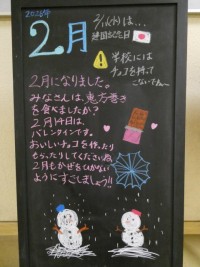 2月
2/11(水)は…
建国記念日
学校には
チョコを持って
こないでね〜
2月になりました。
みなさんは、恵方巻き
を食べましたか？
2月14日は、
バレンタインです。
おいしいチョコを作ったり
もらったりしてください
2月もかぜをひかない
ようにすごしましょう!!